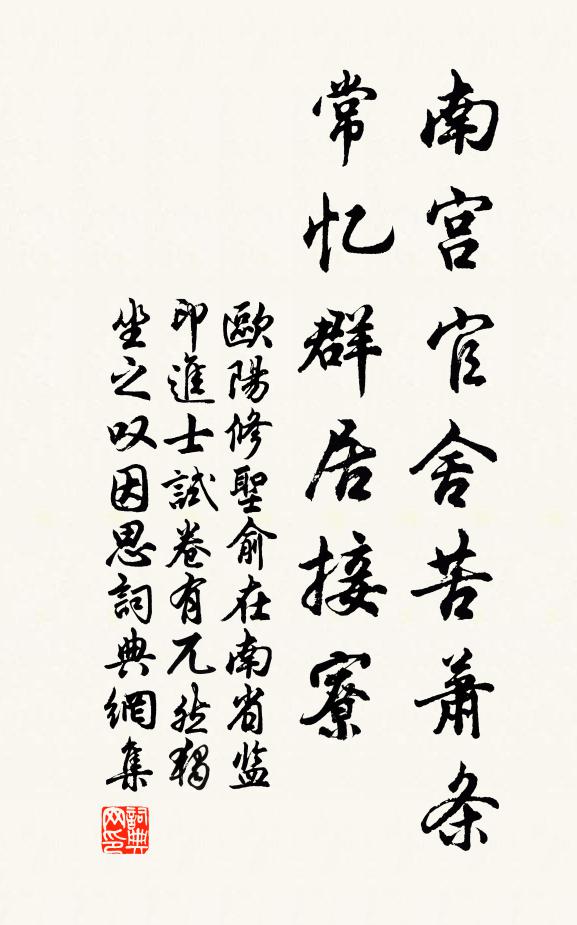 南宫官舍苦萧条
常忆群居接寮
歐陽修聖俞在南省监
印進士試卷有兀然獨
坐之叹因思詞典網集
詞典
网印